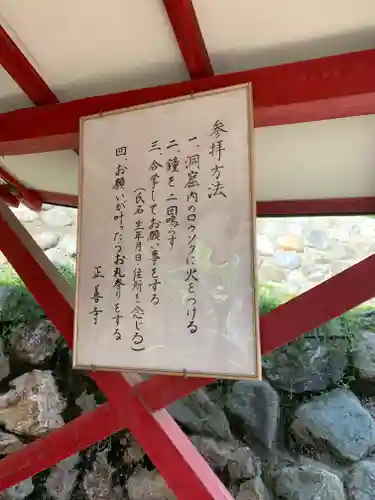 参拝方法
一、洞窟内のロウソクに火をつける
二、鐘を二回鳴らす
三、合掌してお願い事をする
(氏名 生年月日 住所を念じる)
四、お願いが叶ったらお礼参りをする
正善寺